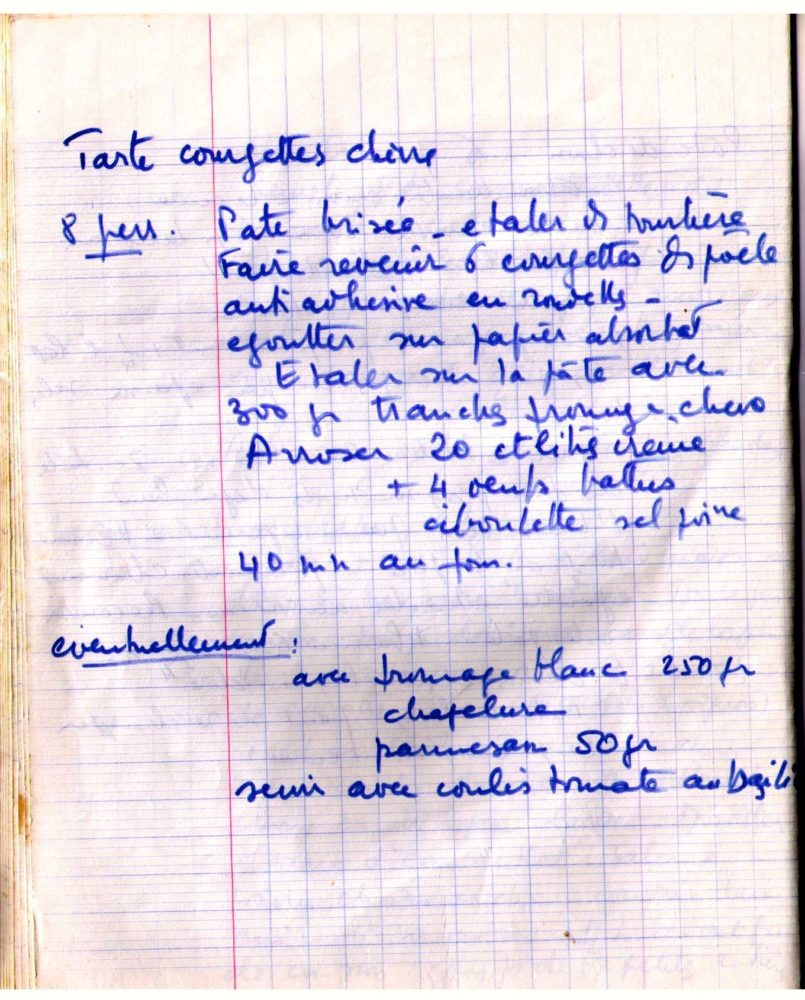 Tarte courgettes chèvre
8 pers. Pate brisée - etaler ds tourtière
Faire revenir 6 courgettes ds poêle
anti adhesive en rondelles -
egoutter sur papier absorbat
Etaler sur la pâte avec
300 gr tranches fromage chevre
Arroser 20 ctlitres creme
+ 4 oeufs battus
ciboulette sel poivre
40 mn au four.
eventuellement :
avec fromage blanc 250 gr
chapelure
parmesan 50 gr
servir avec coulis tomate au basili